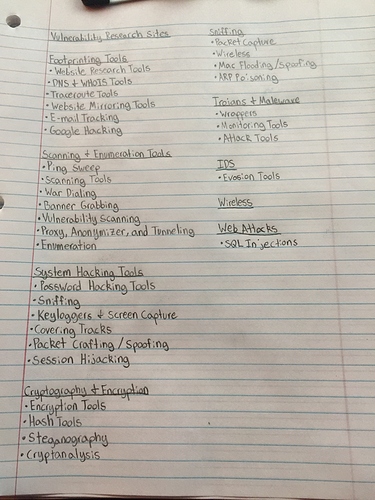 Vulnerability Research Sites
Footprinting Tools
• Website Research Tools
• DNS + WHOIS Tools
• Traceroute Tools
• Website Mirroring Tools
• E-mail Tracking
• Google Hacking
Scanning + Enumeration Tools
• Ping Sweep
• Scanning Tools
• War Dialing
• Banner Grabbing
• Vulnerability Scanning
• Proxy, Anonymizer, and Tunneling
• Enumeration
System Hacking Tools
• Password Hacking Tools
• Sniffing
• Keyloggers + Screen Capture
• Covering Tracks
• Packet Crafting / Spoofing
• Session Hijacking
Cryptography + Encryption
• Encryption Tools
• Hash Tools
• Steganography
• Cryptanalysis
Sniffing
• Packet Capture
• Wireless
• Mac Flooding / Spoofing
• ARP Poisoning
Trojans + Malware
• Wrappers
• Monitoring Tools
• Attack Tools
IDS
• Evasion Tools
Wireless
Web Attacks
• SQL Injections